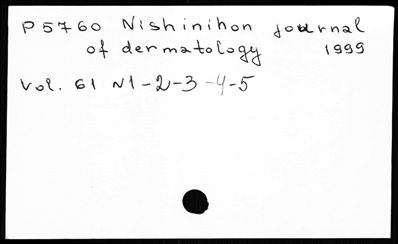 P5760 Nishinihon journal
of dermatology 1999
Vol. 61 N1-2-3-4-5